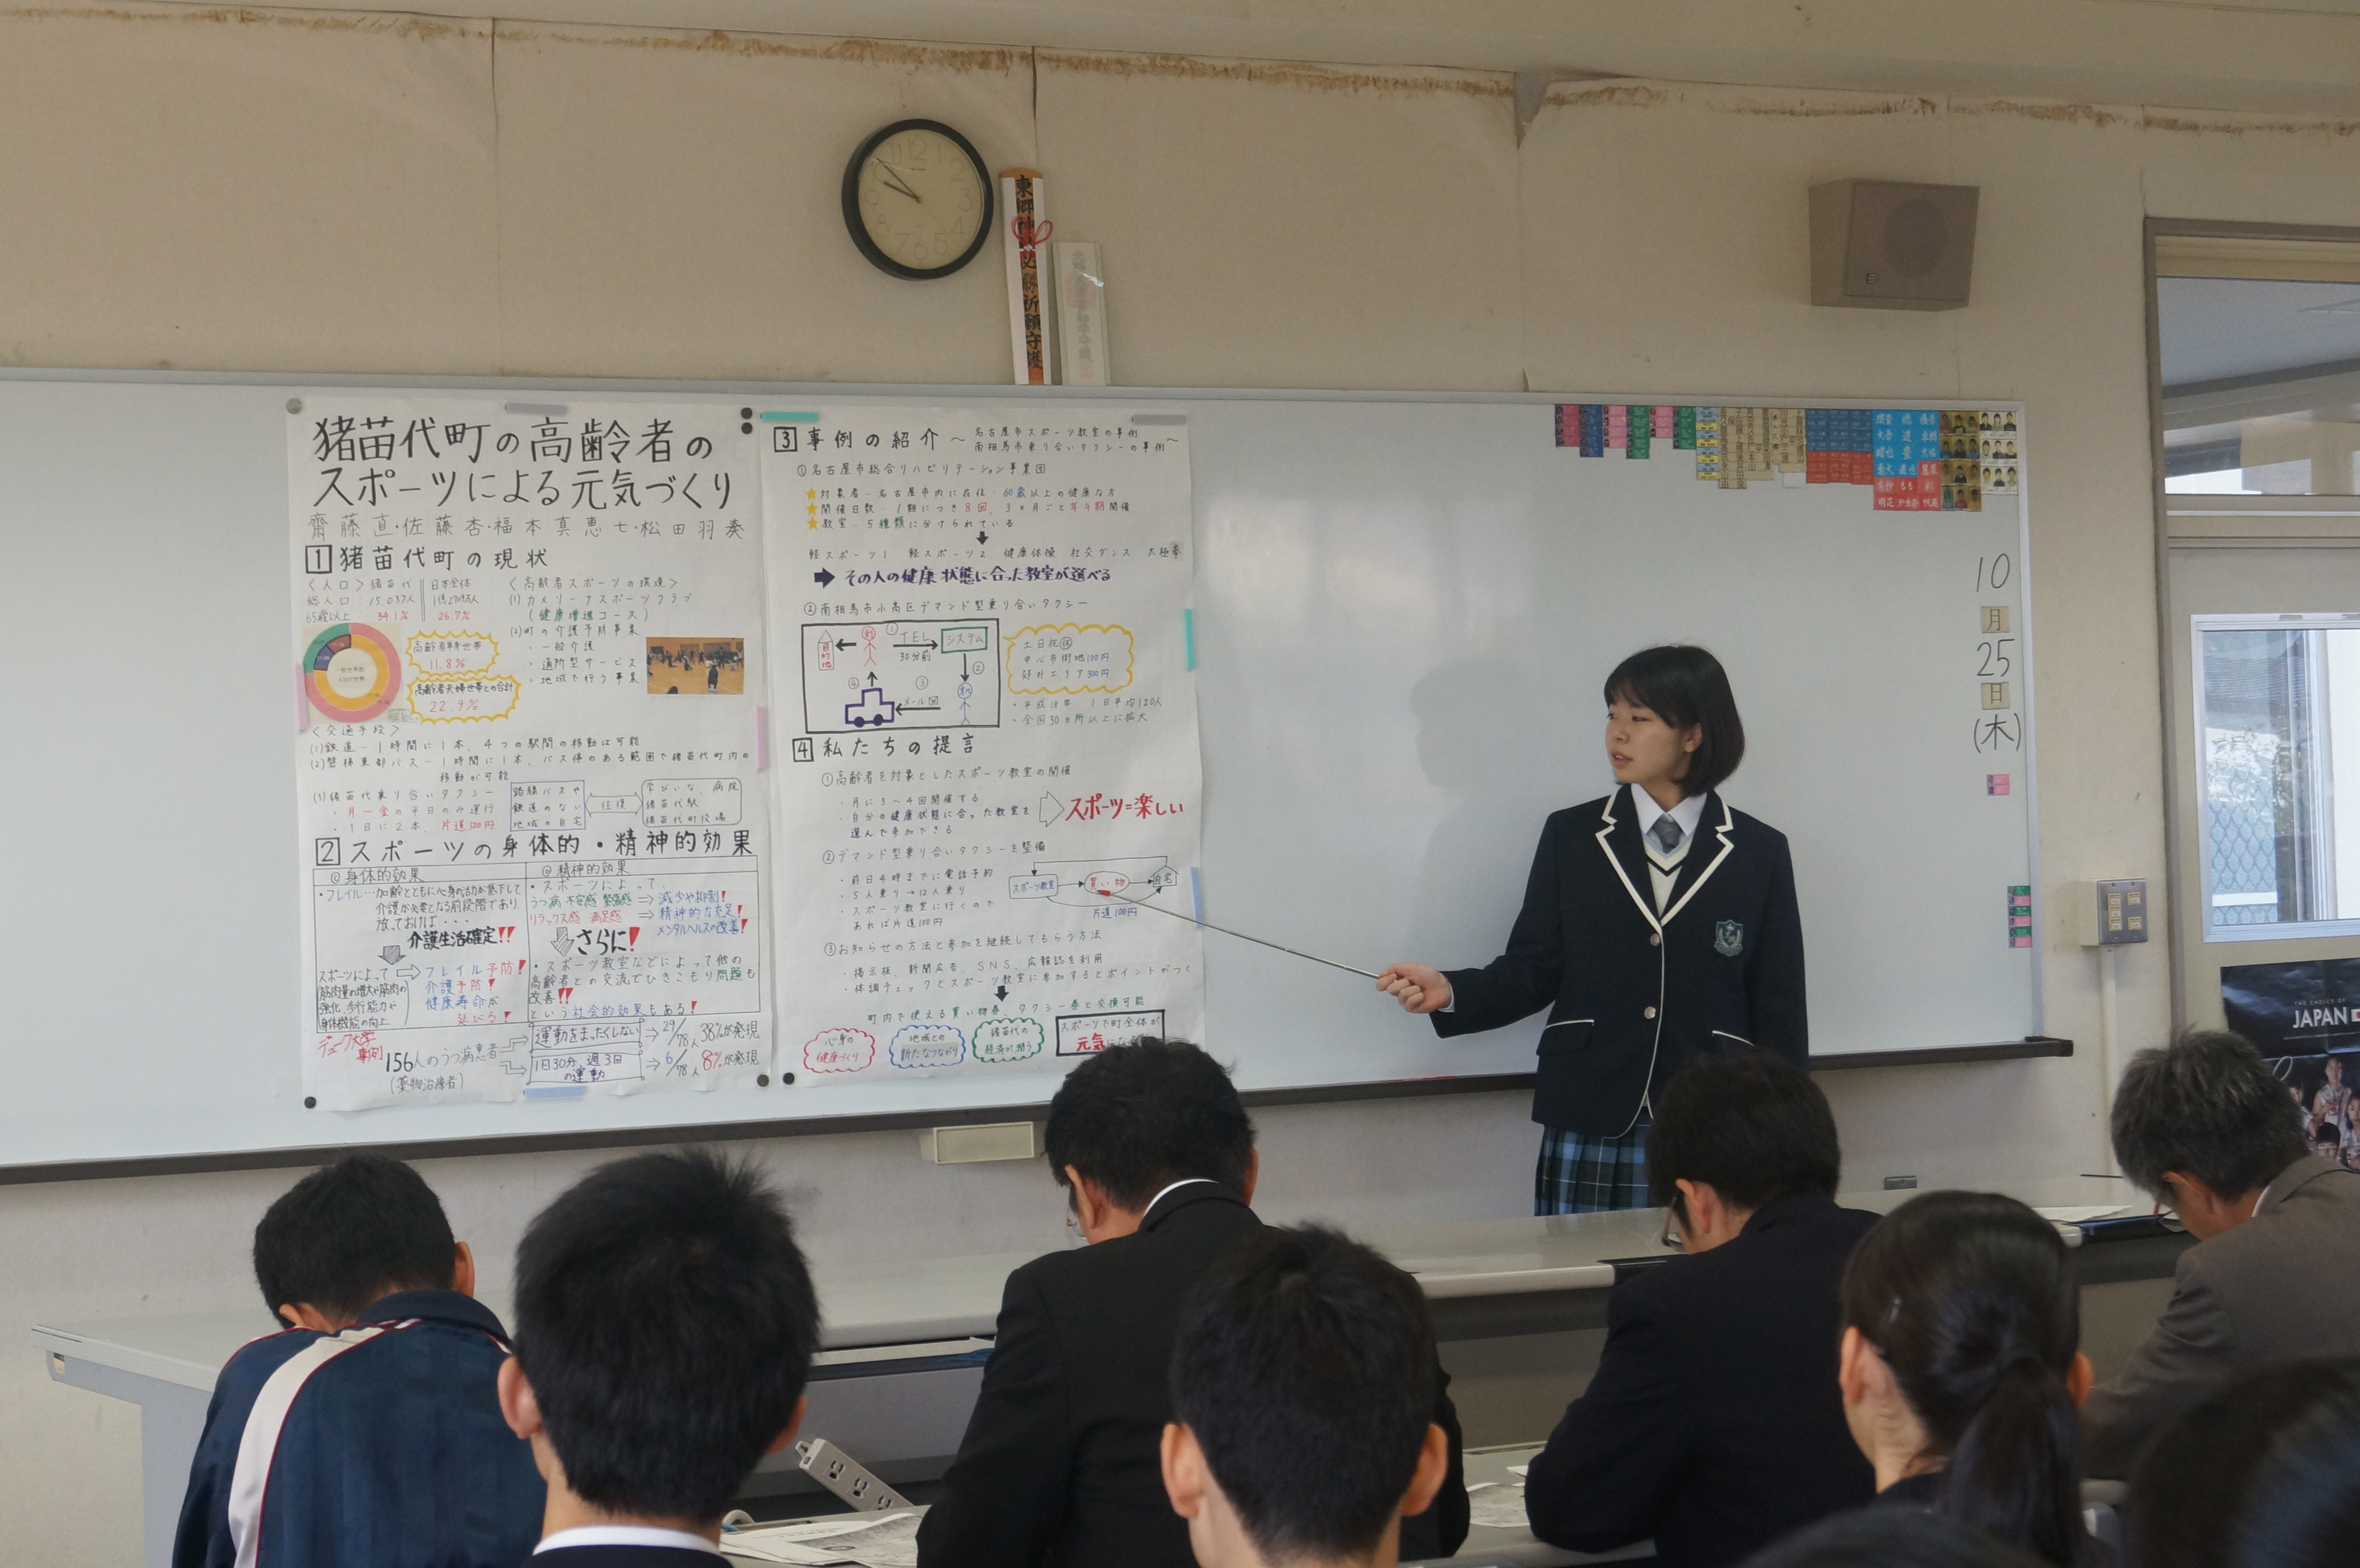 猪苗代町の高齢者の
スポーツによる元気づくり
齋藤直・佐藤杏・福本真恵七・松田羽奏
1 猪苗代町の現状
〈人口〉猪苗代 日本全体
総人口:15037人
65歳以上:34.1% 26.7%
高齢者単身世帯
11.8%
高齢者夫婦世帯との合計
22.9%
〈高齢者スポーツの環境〉
(1)カメリーナスポーツクラブ
(健康増進コース)
(2)町の介護予防事業
・一般介護
・通所型サービス
・地域で行う事業
〈交通手段〉
(1)鉄道-1時間に1本、4つの駅間の移動は可能
(2)磐梯東都バス-1時間に1本、バス停のある範囲で猪苗代町内の
移動が可能
(3)猪苗代乗り合いタクシー
・月-金の平日のみ運行
・1日に2本、片道500円
路線バスや
鉄道のない
地域の自宅
往復
学びいな、病院
猪苗代駅
猪苗代町役場
2 スポーツの身体的・精神的効果
◎身体的効果
・フレイル…加齢とともに心身の活力が低下して
介護が必要となる前段階であり、
放っておけば・・・
介護生活確定!!
スポーツによって
筋肉量の増大や筋肉の
強化、歩行能力や
身体機能の向上
フレイル予防!
介護予防!
健康寿命が
延びる!
◎精神的効果
・スポーツによって、
うつ病 不安感 緊張感 ⇒ 減少や抑制!
リラックス感 満足感 ⇒ 精神的な充足!
メンタルヘルスの改善!
さらに!
・スポーツ教室などによって他の
高齢者との交流でひきこもり問題も
改善!!
という社会的効果もある!
デューク大学
事例
156人のうつ病患者
(薬物治療者)
運動をまったくしない → 29/78人 38%が発現
1日30分、週3回
の運動
→ 6/78人 8%が発現
3 事例の紹介 ~ 名古屋市スポーツ教室の事例
南相馬市乗り合いタクシーの事例 ~
①名古屋市総合リハビリテーション事業団
★対象者-名古屋市内に在住・60歳以上の健康な方
★開催日数-1期につき8回、3ヶ月ごと年4期開催
★教室-5種類に分けられている
軽スポーツ1 軽スポーツ2 健康体操 社交ダンス 太極拳
その人の健康状態に合った教室が選べる
②南相馬市小高区デマンド型乗り合いタクシー
目的地
① TEL
30分前
システム
②
③
メール
④
土日祝
中心市街地100円
郊外エリア300円
・平成18年 1日平均120人
・全国30ヵ所以上に拡大
4 私たちの提言
①高齢者を対象としたスポーツ教室の開催
・月に3~4回開催する
・自分の健康状態に合った教室を
選んで参加できる
スポーツ=楽しい
②デマンド型乗り合いタクシーを整備
・前日4時までに電話予約
・5人乗り→12人乗り
・スポーツ教室に行くので
あれば片道100円
スポーツ教室
買い物
自宅
片道100円
③お知らせの方法と参加を継続してもらう方法
・掲示板、新聞広告、SNS、広報誌を利用
・体調チェックとスポーツ教室に参加するとポイントがつく
町内で使える買い物券、タクシー券と交換可能
心身の
健康づくり
地域との
新たなつながり
猪苗代の
経済が潤う
スポーツで町全体が
元気に
必勝祈願守護
10
月
25
日
(木)
THE CHOICE OF
JAPAN